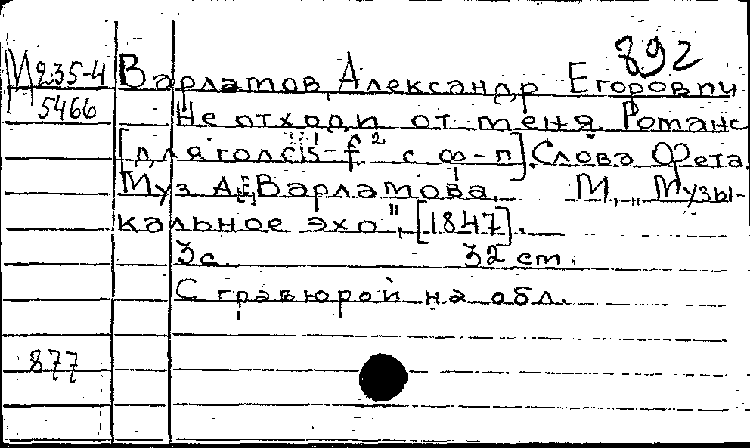 892
М 235-4 Варламов, Александр Егорович
5466 Не отходи от меня. Романс
[для голоса с ф-п]. Слова Фета.
Муз. А.Е. Варламова. М., "Музы-
кальное эхо", [1847].
3 с. 32 cm.
С гравюрой на обл.
877